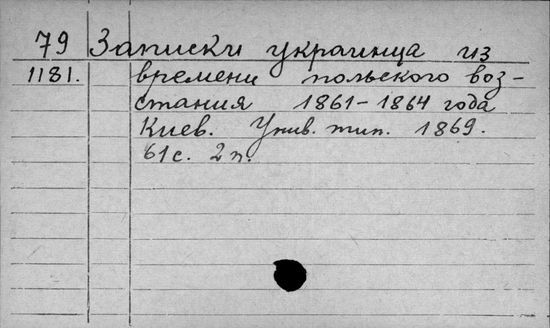 79 Записки украинца из
1181. времени польского воз-
стания 1861-1864 года
Киев. Унив. тип. 1869.
61 с. 2 п.